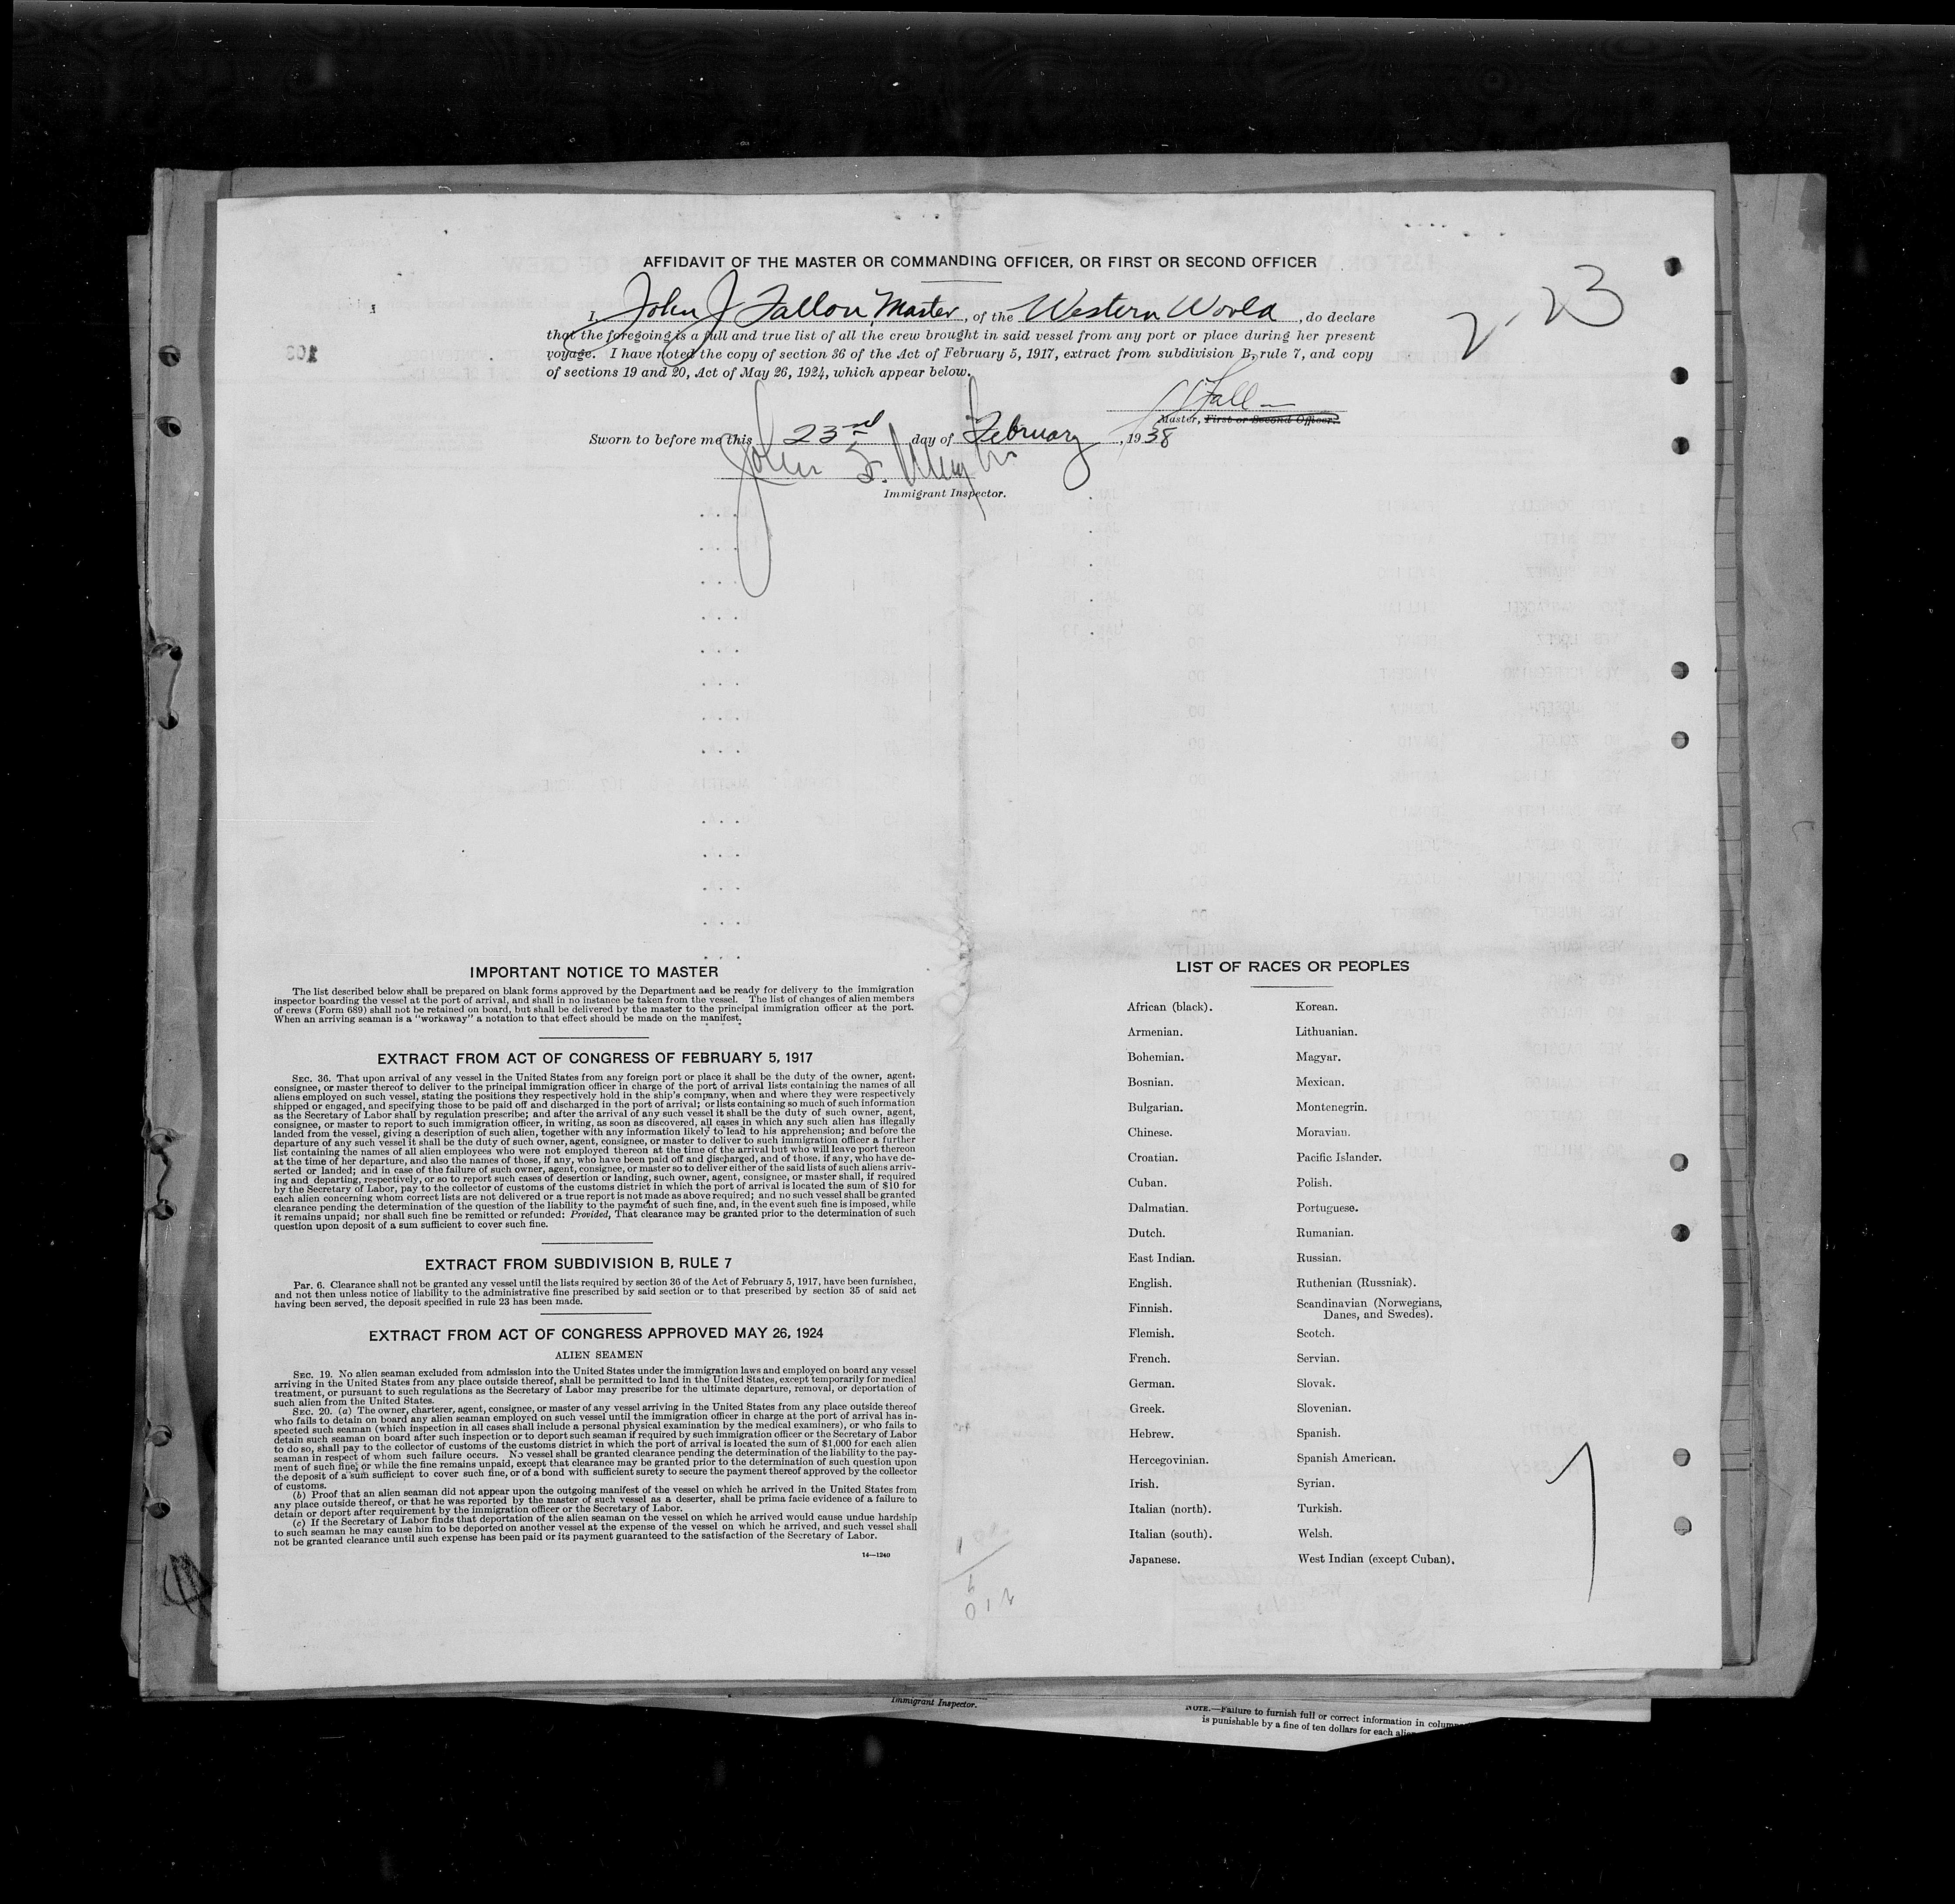 AFFIDAVIT OF THE MASTER OR COMMANDING OFFICER, OR FIRST OR SECOND OFFICER
I, John J Fallon, Master, of the Western World, do declare
that the foregoing is a full and true list of all the crew brought in said vessel from any port or place during her present
voyage. I have noted the copy of section 36 of the Act of February 5, 1917, extract from subdivision B, rule 7, and copy
of sections 19 and 20, Act of May 26, 1924, which appear below.
2-23
Master, First or Second Officer.
Sworn to before me this 23rd day of February, 1938
John
Immigrant Inspector.
IMPORTANT NOTICE TO MASTER
The list described below shall be prepared on blank forms approved by the Department and be ready for delivery to the immigration
inspector boarding the vessel at the port of arrival, and shall in no instance be taken from the vessel. The list of changes of alien members
of crews (Form 689) shall not be retained on board, but shall be delivered by the master to the principal immigration officer at the port.
When an arriving seaman is a "workaway" a notation to that effect should be made on the manifest.
EXTRACT FROM ACT OF CONGRESS OF FEBRUARY 5, 1917
SEC. 36. That upon arrival of any vessel in the United States from any foreign port or place it shall be the duty of the owner, agent,
consignee, or master thereof to deliver to the principal immigration officer in charge of the port of arrival lists containing the names of all
aliens employed on such vessel, stating the positions they respectively hold in the ship's company, when and where they were respectively
shipped or engaged, and specifying those to be paid off and discharged in the port of arrival; or lists containing so much of such information
as the Secretary of Labor shall by regulation prescribe; and after the arrival of any such vessel it shall be the duty of such owner, agent,
consignee, or master to report to such immigration officer, in writing, as soon as discovered, all cases in which any such alien has illegally
landed from the vessel, giving a description of such alien, together with any information likely to lead to his apprehension; and before the
departure of any such vessel it shall be the duty of such owner, agent, consignee, or master to deliver to such immigration officer a further
list containing the names of all alien employees who were not employed thereon at the time of the arrival but who will leave port thereon
at the time of her departure, and also the names of those, if any, who have been paid off and discharged, and of those, if any, who have de-
serted or landed; and in case of the failure of such owner, agent, consignee, or master so to deliver either of the said lists of such aliens arriv-
ing and departing, respectively, or so to report such cases of desertion or landing, such owner, agent, consignee, or master shall, if required
by the Secretary of Labor, pay to the collector of customs of the customs district in which the port of arrival is located the sum of $10 for
each alien concerning whom correct lists are not delivered or a true report is not made as above required; and no such vessel shall be granted
clearance pending the determination of the question of the liability to the payment of such fine, and, in the event such fine is imposed, while
it remains unpaid; nor shall such fine be remitted or refunded: Provided, That clearance may be granted prior to the determination of such
question upon deposit of a sum sufficient to cover such fine.
EXTRACT FROM SUBDIVISION B, RULE 7
Par. 6. Clearance shall not be granted any vessel until the lists required by section 36 of the Act of February 5, 1917, have been furnished,
and not then unless notice of liability to the administrative fine prescribed by said section or to that prescribed by section 35 of said act
having been served, the deposit specified in rule 23 has been made.
EXTRACT FROM ACT OF CONGRESS APPROVED MAY 26, 1924
ALIEN SEAMEN
SEC. 19. No alien seaman excluded from admission into the United States under the immigration laws and employed on board any vessel
arriving in the United States from any place outside thereof, shall be permitted to land in the United States, except temporarily for medical
treatment, or pursuant to such regulations as the Secretary of Labor may prescribe for the ultimate departure, removal, or deportation of
such alien from the United States.
SEC. 20. (a) The owner, charterer, agent, consignee, or master of any vessel arriving in the United States from any place outside thereof
who fails to detain on board any alien seaman employed on such vessel until the immigration officer in charge at the port of arrival has in-
spected such seaman (which inspection in all cases shall include a personal physical examination by the medical examiners), or who fails to
detain such seaman on board after such inspection or to deport such seaman if required by such immigration officer or the Secretary of Labor
to do so, shall pay to the collector of customs of the customs district in which the port of arrival is located the sum of $1,000 for each alien
seaman in respect of whom such failure occurs. No vessel shall be granted clearance pending the determination of the liability to the pay-
ment of such fine, or while the fine remains unpaid, except that clearance may be granted prior to the determination of such question upon
the deposit of a sum sufficient to cover such fine, or of a bond with sufficient surety to secure the payment thereof approved by the collector
of customs.
(b) Proof that an alien seaman did not appear upon the outgoing manifest of the vessel on which he arrived in the United States from
any place outside thereof, or that he was reported by the master of such vessel as a deserter, shall be prima facie evidence of a failure to
detain or deport after requirement by the immigration officer or the Secretary of Labor.
(c) If the Secretary of Labor finds that deportation of the alien seaman on the vessel on which he arrived would cause undue hardship
to such seaman he may cause him to be deported on another vessel at the expense of the vessel on which he arrived, and such vessel shall
not be granted clearance until such expense has been paid or its payment guaranteed to the satisfaction of the Secretary of Labor.
14—1240
LIST OF RACES OR PEOPLES
African (black). Korean.
Armenian. Lithuanian.
Bohemian. Magyar.
Bosnian. Mexican.
Bulgarian. Montenegrin.
Chinese. Moravian.
Croatian. Pacific Islander.
Cuban. Polish.
Dalmatian. Portuguese.
Dutch. Rumanian.
East Indian. Russian.
English. Ruthenian (Russniak).
Finnish. Scandinavian (Norwegians,
Danes, and Swedes).
Flemish. Scotch.
French. Servian.
German. Slovak.
Greek. Slovenian.
Hebrew. Spanish.
Hercegovinian. Spanish American.
Irish. Syrian.
Italian (north). Turkish.
Italian (south). Welsh.
Japanese. West Indian (except Cuban).
Immigrant Inspector.
NOTE.—Failure to furnish full or correct information in
is punishable by a fine of ten dollars for each